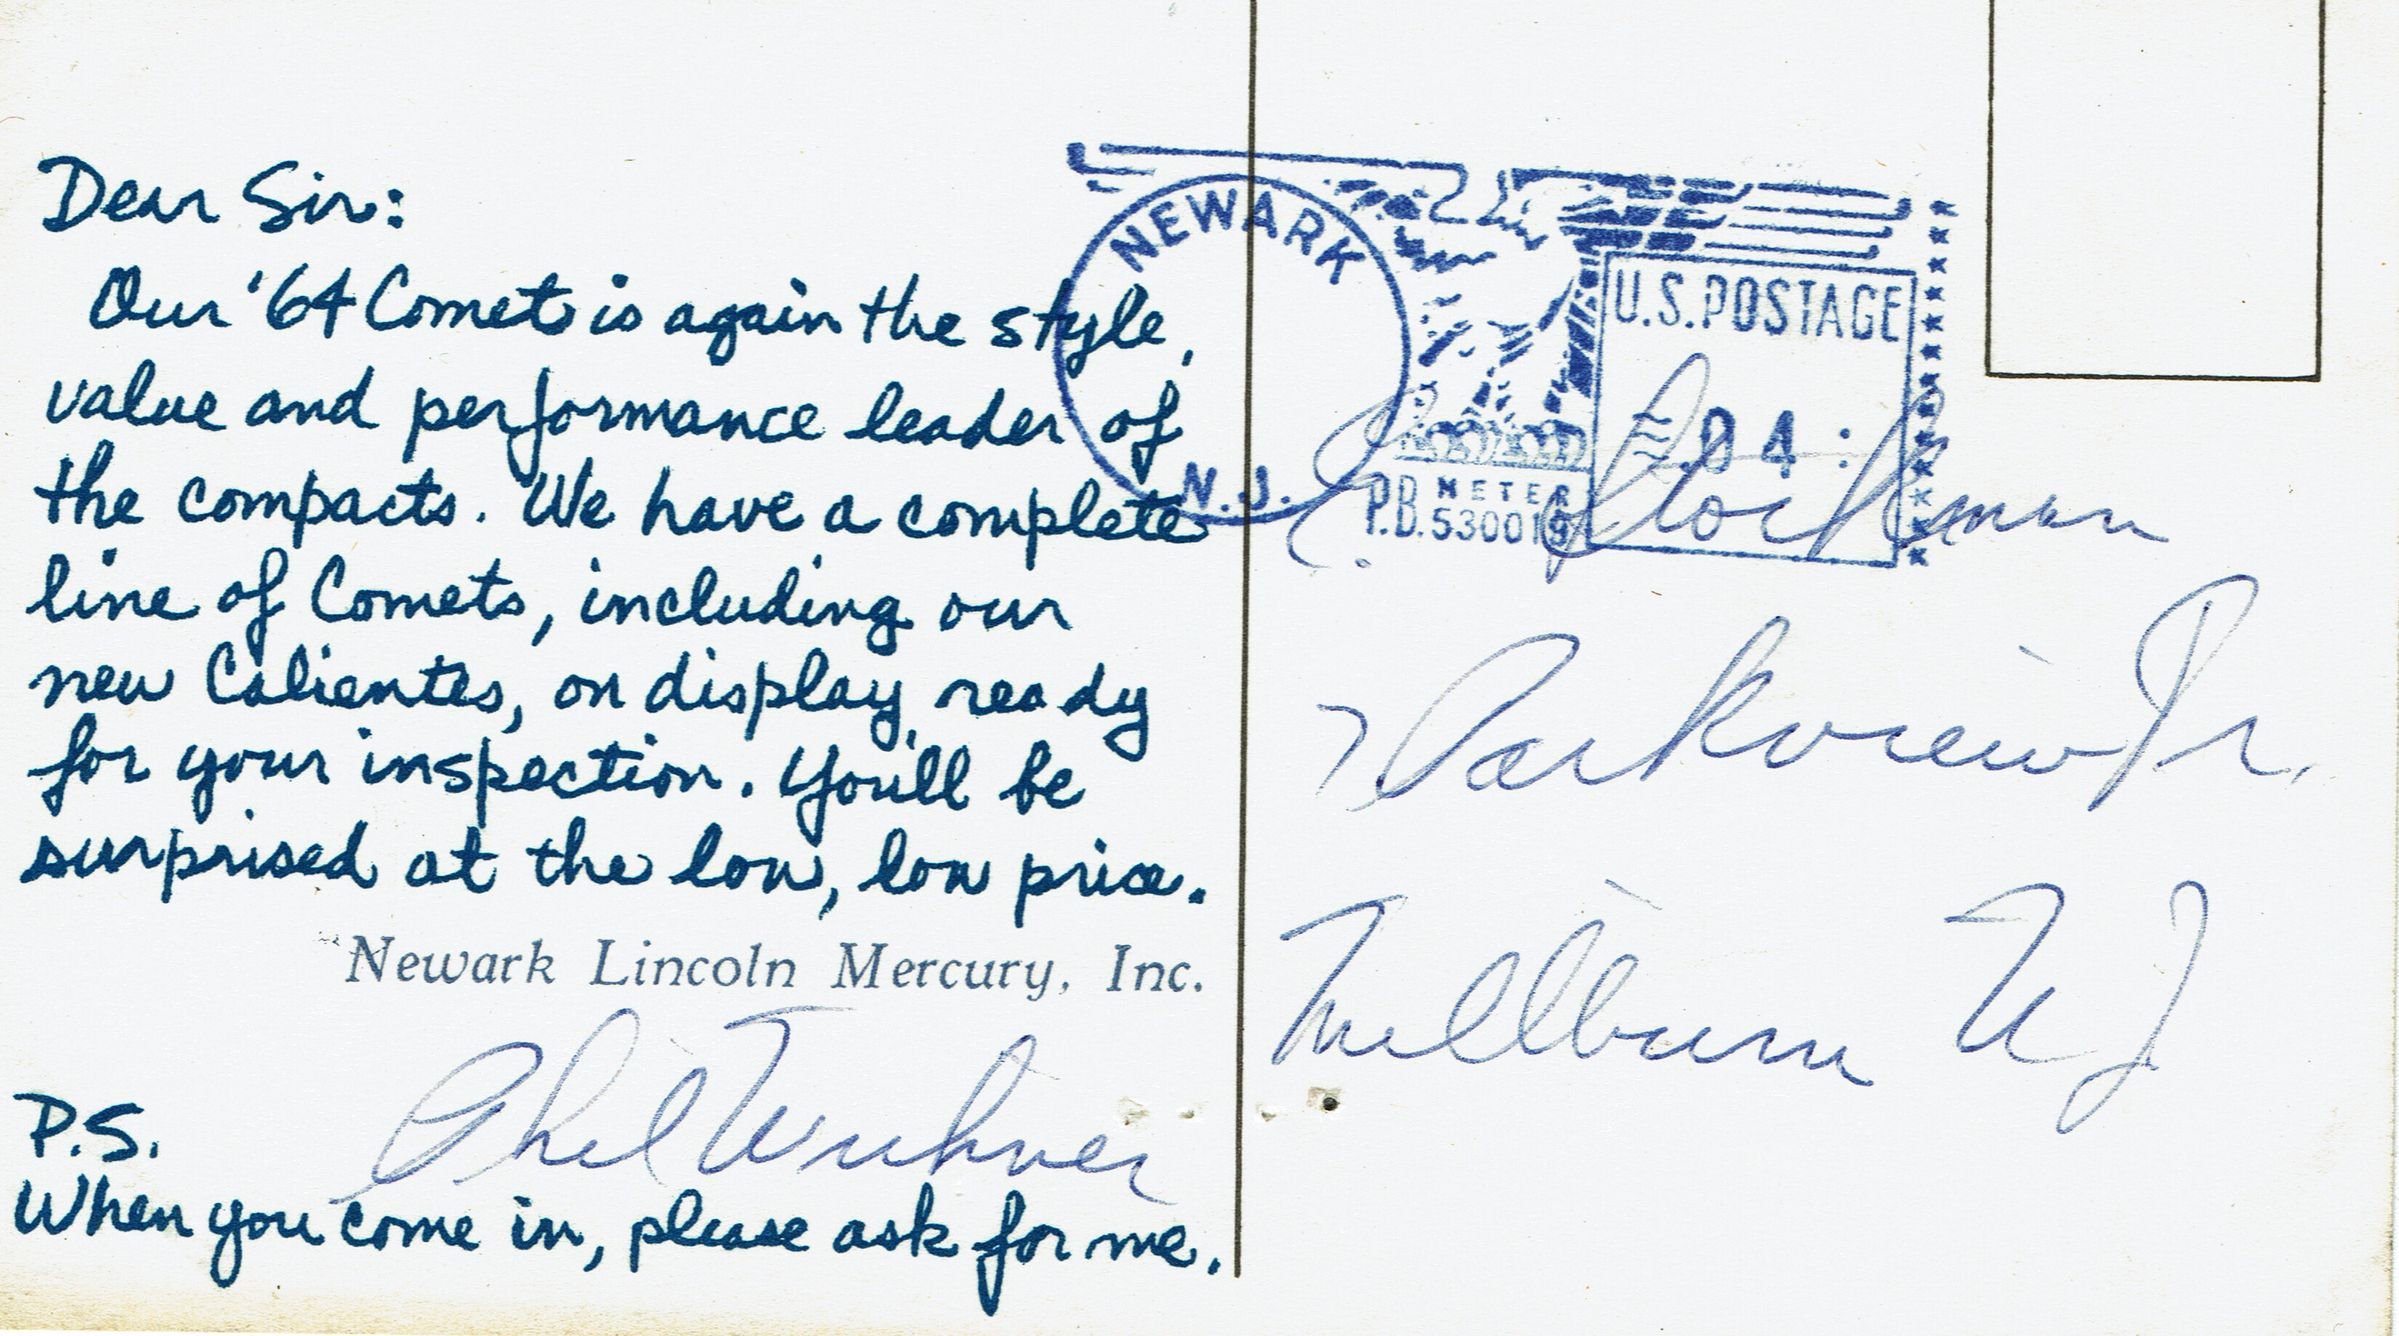 Dear Sir:
Our '64 Comet is again the style,
value and performance leader of
the compacts. We have a complete
line of Comets, including our
new Calientes, on display, ready
for your inspection. You'll be
surprised at the low, low price.
Newark Lincoln Mercury, Inc.
Phil
P.S.
When you come in, please ask for me.
NEWARK
N.J.
U.S. POSTAGE
.04
P.B. METER
530019
7 Parkview Dr.
Millburn NJ